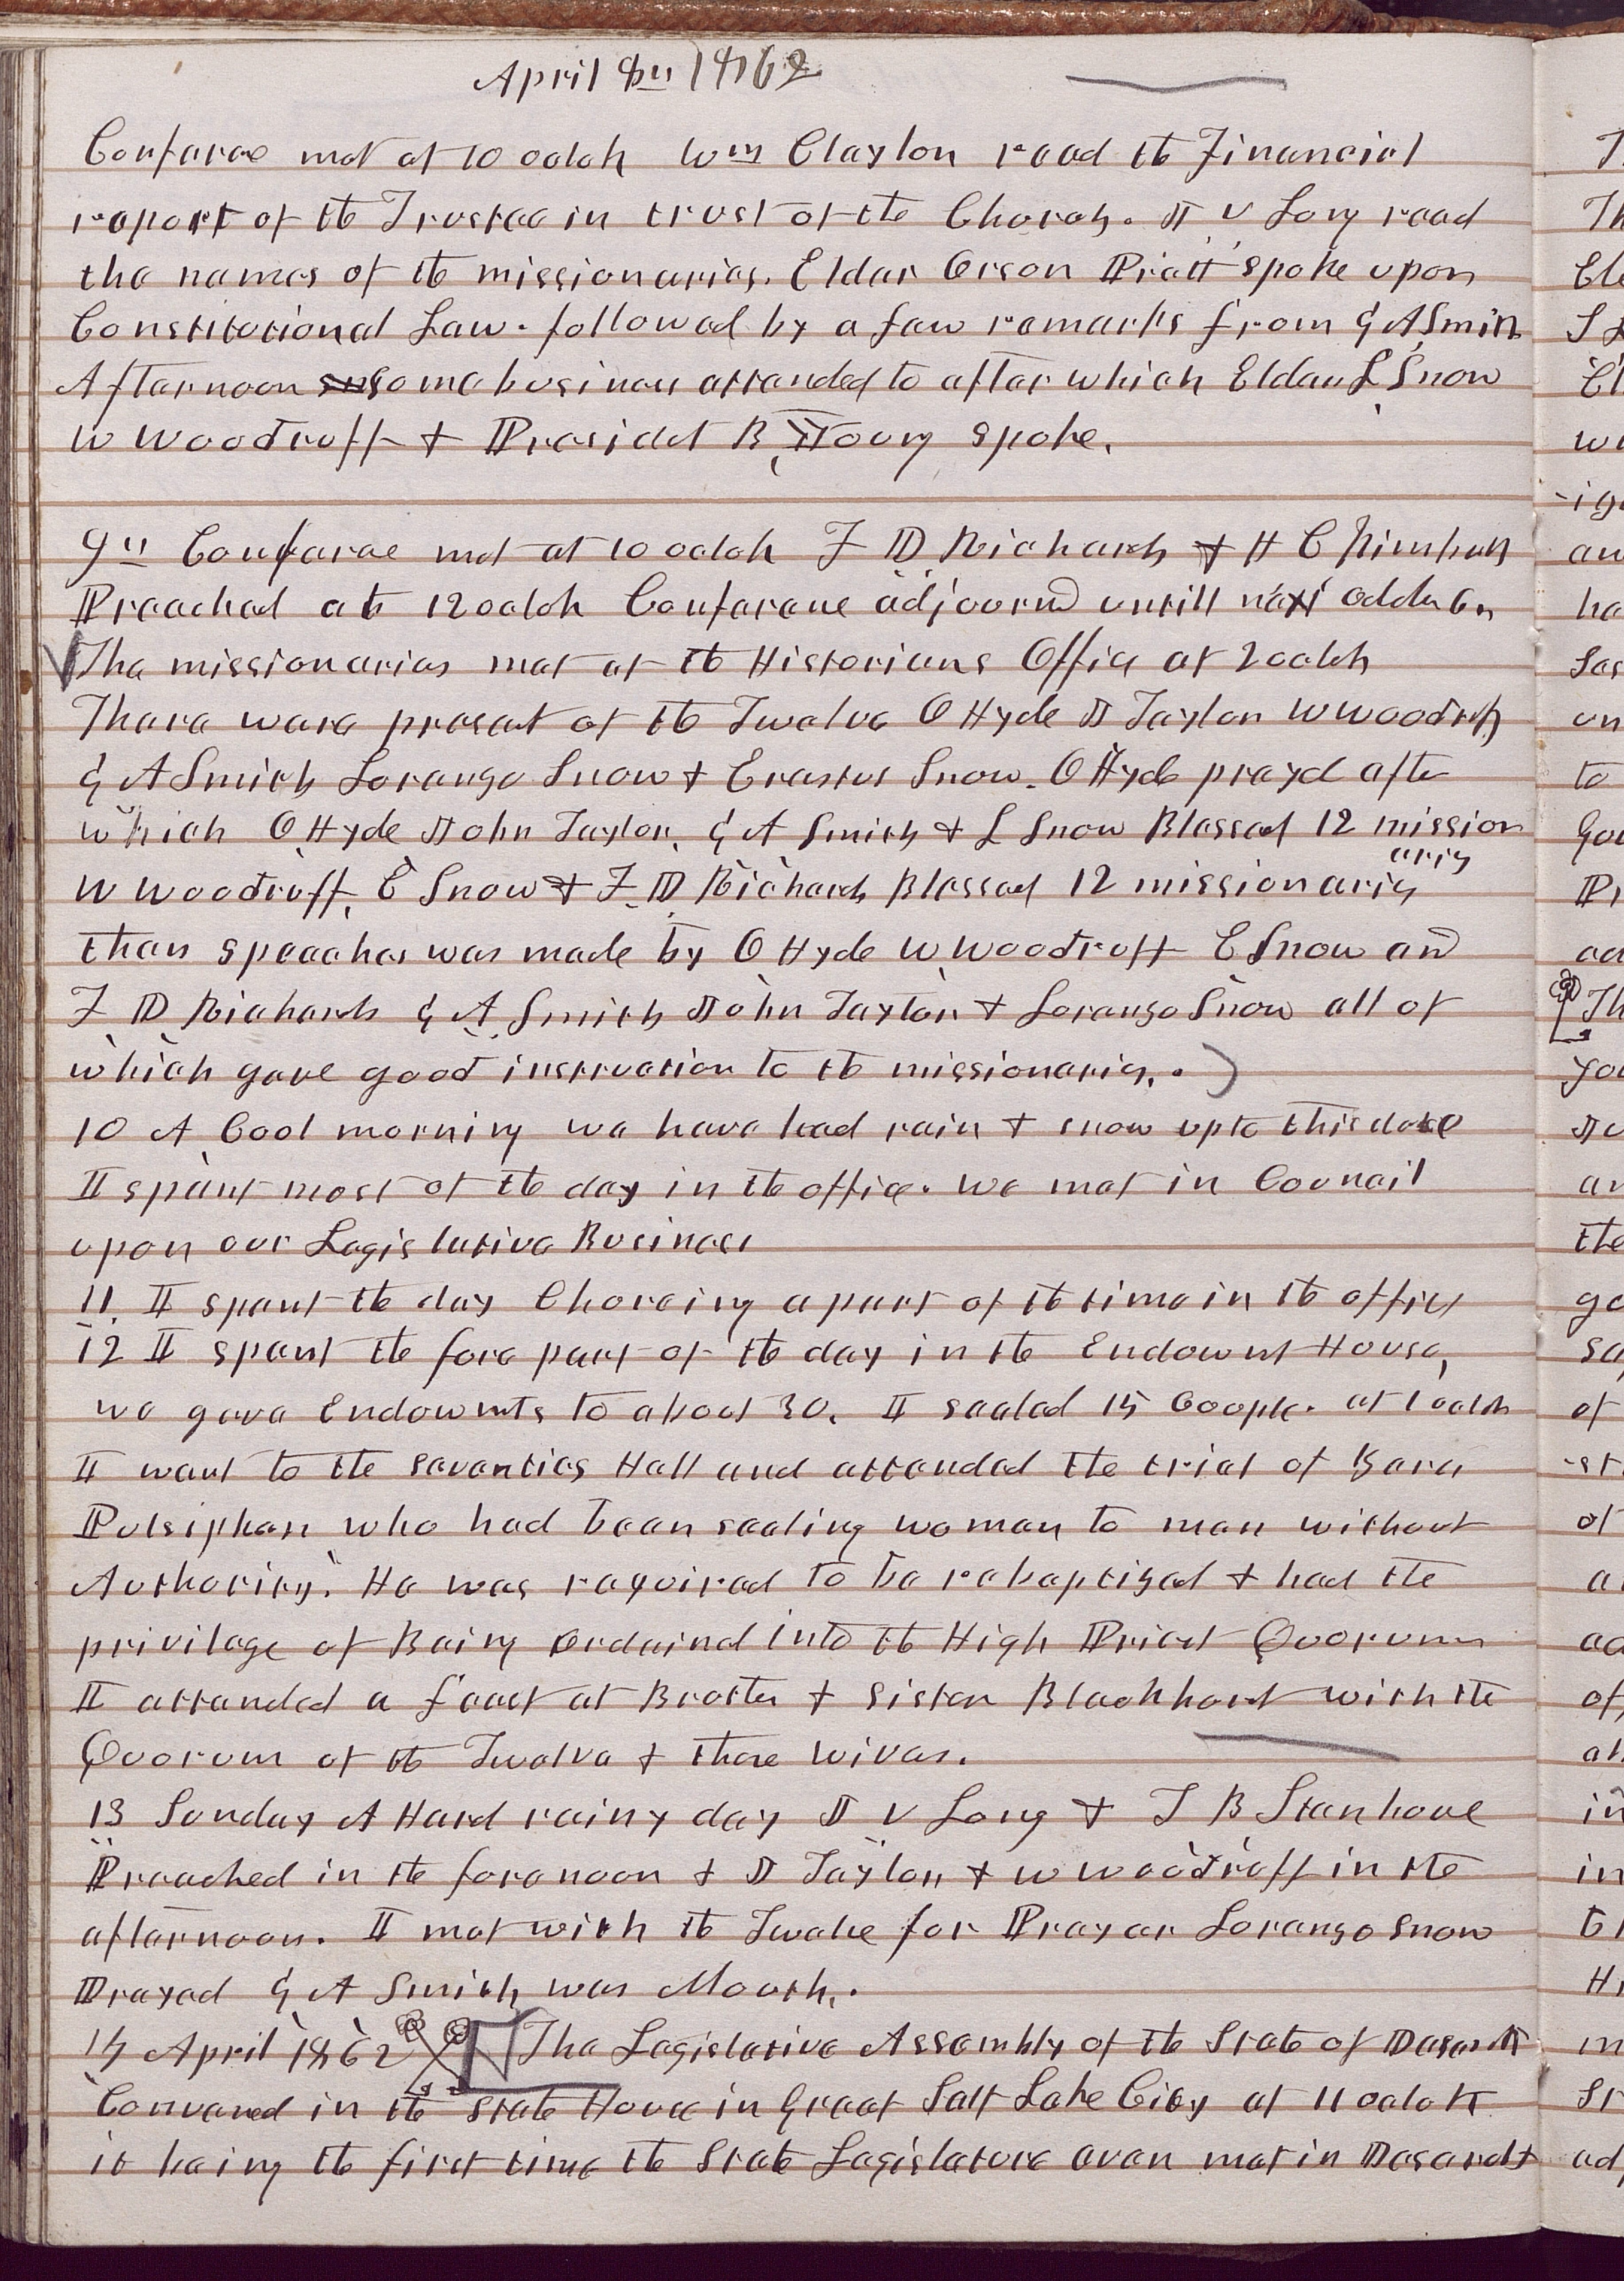 April 8th 1862
Conferee met at 10 oclok Wm Clayton read the Financial
report of the Trustee in trust of the Church. J V Long read
the names of the missionaries. Elder Orson Pratt spoke upon
Constitutional Law. followed by a few remarks from G A Smith
Afternoon some business attended to after which Elder L Snow
W Woodruff & Presidet B Young spoke.
9th Conferee met at 10 oclok F D Richards & H C Kimball
Preached at 12 oclok Conferene adjournd untill next October 6th
The missionaries met at the Historians Office at 2 oclok
There were present of the Twelve O Hyde J Taylor W Woodruff
G A Smith Lorenzo Snow & Erastus Snow. O Hyde prayd after
which O Hyde John Taylor, G A Smith & L Snow Blessed 12 mission
aries
W Woodruff, E Snow & F D Richards Blessed 12 missionaries
then speeches was made by O Hyde W Woodruff E Snow and
F D Richards G A Smith John Taylor & Lorenzo Snow all of
which gave good instruction to the missionaries.
10 A Cool morning we have had rain & snow up to this date
I spent most of the day in the office. we met in Councail
upon our Legislative Business
11. I spent the day Choreing a part of the time in the office
12 I spent the fore part of the day in the Endowmt House,
we gave Endowmts to about 30. I sealed 15 Coople. at 1 oclok
I went to the seventies Hall and attended the trial of Zera
Pulsipher who had been sealing woman to man without
Authority. He was required to be rebaptized & had the
privilege of Being ordaind into the High Priest Quorum
I attended a feast at Brother & Sister Blackhurst with the
Quorum of the Twelve & there wives.
13 Sunday A Hard rainy day J V Long & T B Stenhouse
Preached in the forenoon & J Taylor & W Woodruff in the
afternoon. I met with the Twelve for Prayer Lorenzo Snow
Prayed G A Smith was Mouth.
14 April 1862 The Legislative Assembly of the State of Deseret
Convened in the State House in Great Salt Lake City at 11 oclok
it being the first time the State Legislature even met in Deserett